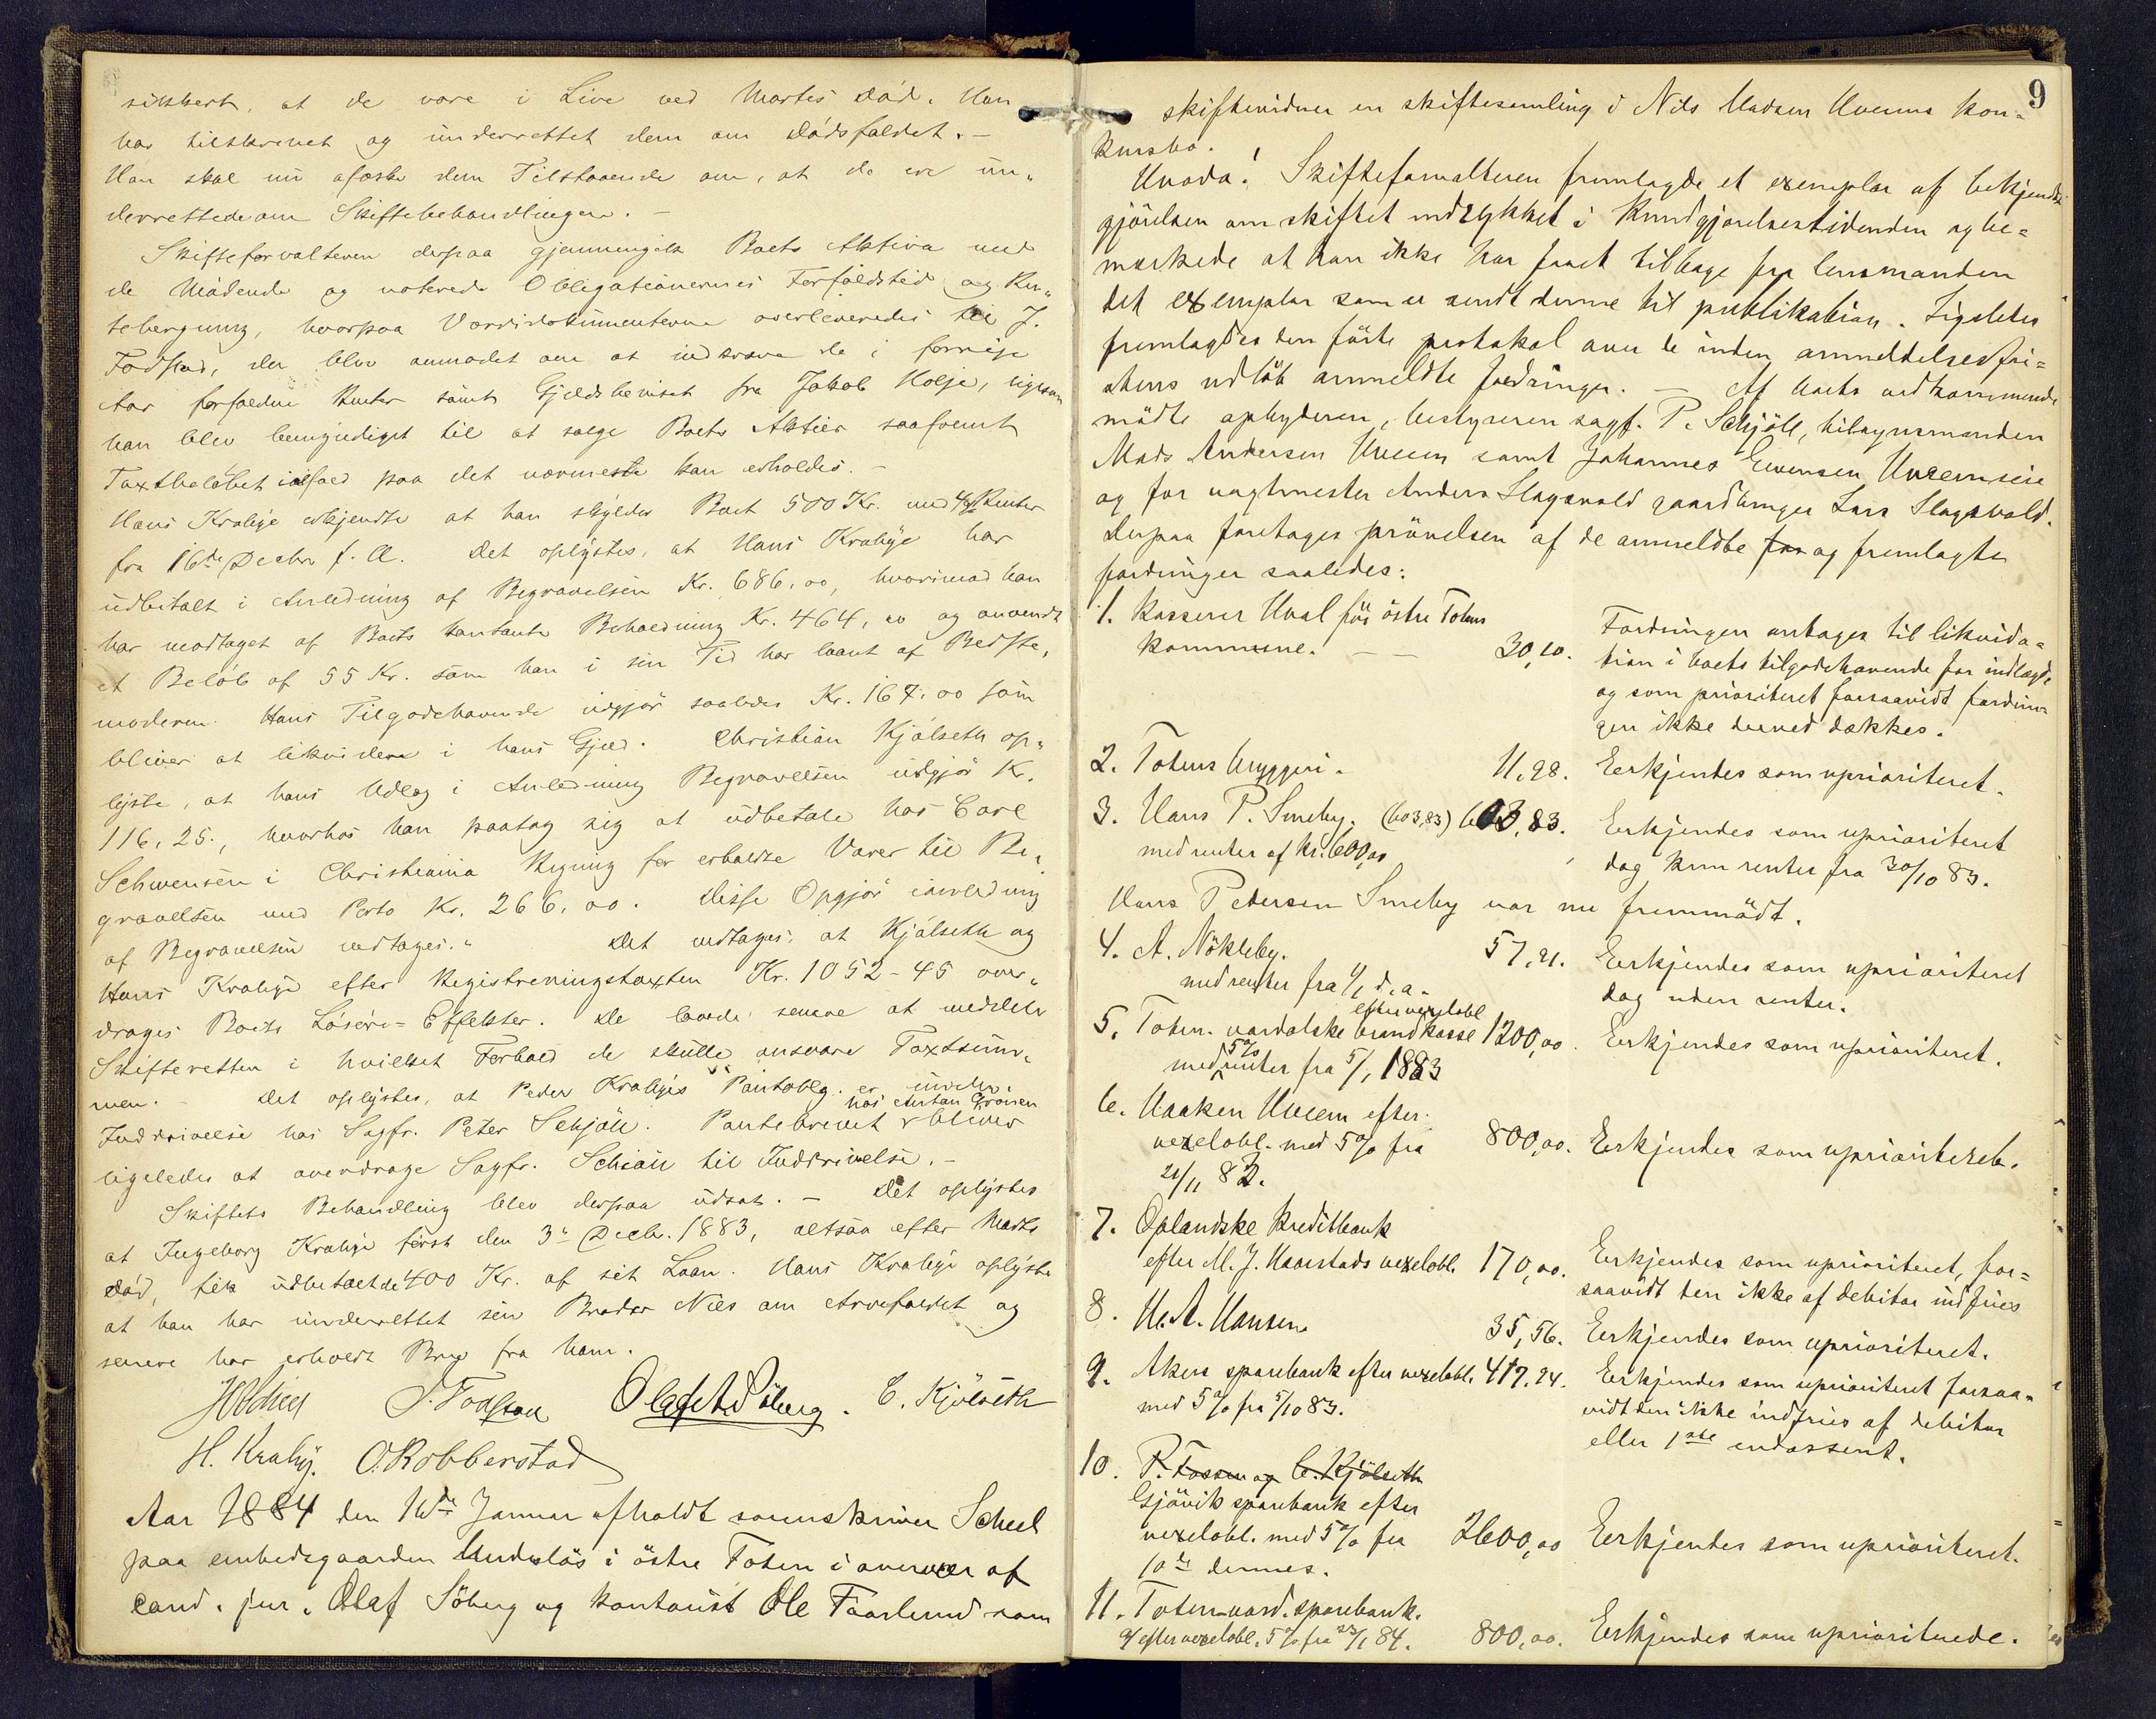 sikkert, at de vare i Live ved Martes Död. Han
har tilskrevet og underrettet dem om Dödsfaldet. –
Han skal nu afæske dem Tilstaaende om, at de ere un„
derrettede om Skiftebehandlingen. –
Skifteforvalteren derpaa gjennemgik Boets Aktiva med
de Mödende og noterede Obligationernes Forfaldstid og Ren„
teberegning, hvorpaa Værdidokumenterne overleveredes til J.
Fodstad, der blev anmodet om at indkræve de i forrige
Aar forfaldne Renter samt Gjeldsbeviset fra Jakob Kolje, ligesom
han blev bemyndiget til at sælge Boets Aktier saafremt
Taxtbeløbet ialfald paa det nærmeste kan erholdes. –
Hans Krabye erkjendte at han skylder Boet 500 Kr. med 4% Renter
fra 16de Decbr f. A. Det oplystes, at Hans Krabye har
udbetalt i Anledning af Begravelsen Kr. 686,00, hvorimod han
har modtaget af Boets kontante Beholdning Kr. 464,00 og anvendt
et Belöb af 55 Kr. som han i sin Tid har laant af Bedste,
moderen. Hans Tilgodehavende udgjör saaledes Kr. 167,00 som
bliver at likvidere i hans Gjæld. Christian Kjölseth op„
lyste, at hans Udlæg i Anledning Begravelsen udgjör Kr.
116,25., hvorhos han paatog sig at udbetale hos Carl
Schwensen i Christiania Regning for erholdte Varer til Be„
gravelsen med Porto Kr. 266,00. Disse Opgjör i anledning
af Begravelsen vedtages. „ Det vedtages, at Kjölseth og
Hans Krabye efter Registreringstaxten Kr. 1052-45 over„
drages Boets Lösöre-Effekter. De lovede senere at meddele
Skifteretten i hvilket Forhold de skulle ansvare Taxtsum„
men. – Det oplystes, at Peder Krabyes Pantoblg. er under
Inddrivelse hos Sagfr. Peter Schjöll. Pantebrevet hos Anton Grönen bliver
ligeledes at overdrage Sagfr. Schiöll til Inddrivelse. –
Skiftets Behandling blev derpaa udsat. – Det oplystes
at Ingeborg Krabye först den 3de Decbr. 1883, altsaa efter Martes
Död, fik udbetalt de 400 Kr. af sit Laan. Hans Krabye oplyste
at han har underrettet sin Broder Nils om Arvefaldet og
senere har erholdt Brev fra ham.
J. Fodstad Olaf Söberg. C. Kjölseth
H. Kraby. O. Robberstad
Aar 1884 den 16de Januar afholdt sorenskriver Scheel
paa embedsgaarden Underlös i östre Toten i overvær af
cand. jur. Olaf Söberg og kontorist Ole Faarlund som
9
skiftevidner en skiftesamling i Nils Madsen Hveems kon=
kursbo.
Hvoda! Skifteforvalteren fremlagde et exemplar af bekjendt=
gjörelsen om skiftet indrykket i Kundgjörelsestidenden og be=
mærkede at han ikke har faaet tilbage fra lensmanden
det exemplar som er sendt denne til publikation. Ligeledes
fremlagdes den förte protokol over de inden anmeldelsesfri=
stens udlöb anmeldte fordringer. – Af boets vedkommende
mödte opbyderen, bestyreren sagf. P. Schjöll, tilsynsmanden
Mads Andersen Hveem samt Johannes Evensen Hveemseie
og for vagtmester Anders Slagsvold gaardbruger Lars Slagsvold.
Derpaa foretages prövelsen af de anmeldte for og fremlagte
fordringer saaledes:
1. Kasserer Hval for östre Totens
kommune. – – 30,10. Fordringen antages til likvida=
tion i boets tilgodehavende for indlagde
og som prioriteret forsaavidt fordrin=
gen ikke derved dækkes.
2. Totens bryggeri. 11,98. Erkjendes som uprioriteret.
3. Hans P. Smeby. (603,83) 603,83. Erkjendes som uprioriteret
med renter af kr. 600,00 dog kun renter fra 30/10 83.
Hans Petersen Smeby var nu fremmödt.
4. A. Nökleby. 57,21. Erkjendes som uprioriteret
med renter fra 1/1 d. a. dog uden renter.
5. Toten-vardalske brandkasse efter vexelobl 1200,00. Erkjendes som uprioriteret.
med 5% renter fra 5/1 1883
6. Haaken Hveem efter
vexelobl. med 5% fra 800,00. Erkjendes som uprioriteret.
21/11 82.
7. Oplandske kreditbank
efter M. J. Haarstads vexelobl. 170,00. Erkjendes som uprioriteret, for=
saavidt den ikke af debitor indfries
8. H. A. Hansen. 35,56. Erkjendes som uprioriteret.
9. Akers sparebank efter vexelobl. 417,24. Erkjendes som uprioriteret forsaa=
med 5% fra 5/10 83. vidt den ikke indfries af debitor
eller 1ste endossent.
10. P. Fossen og C. Kjölseth
Gjövik sparebank efter
vexelobl. med 5% fra 2600,00 Erkjendes som uprioriteret.
10de dennes.
11. Toten-vard. sparebank.
efter vexelobl. 5% fra 23/1 84. 800,00. Erkjendes som uprioriterede.